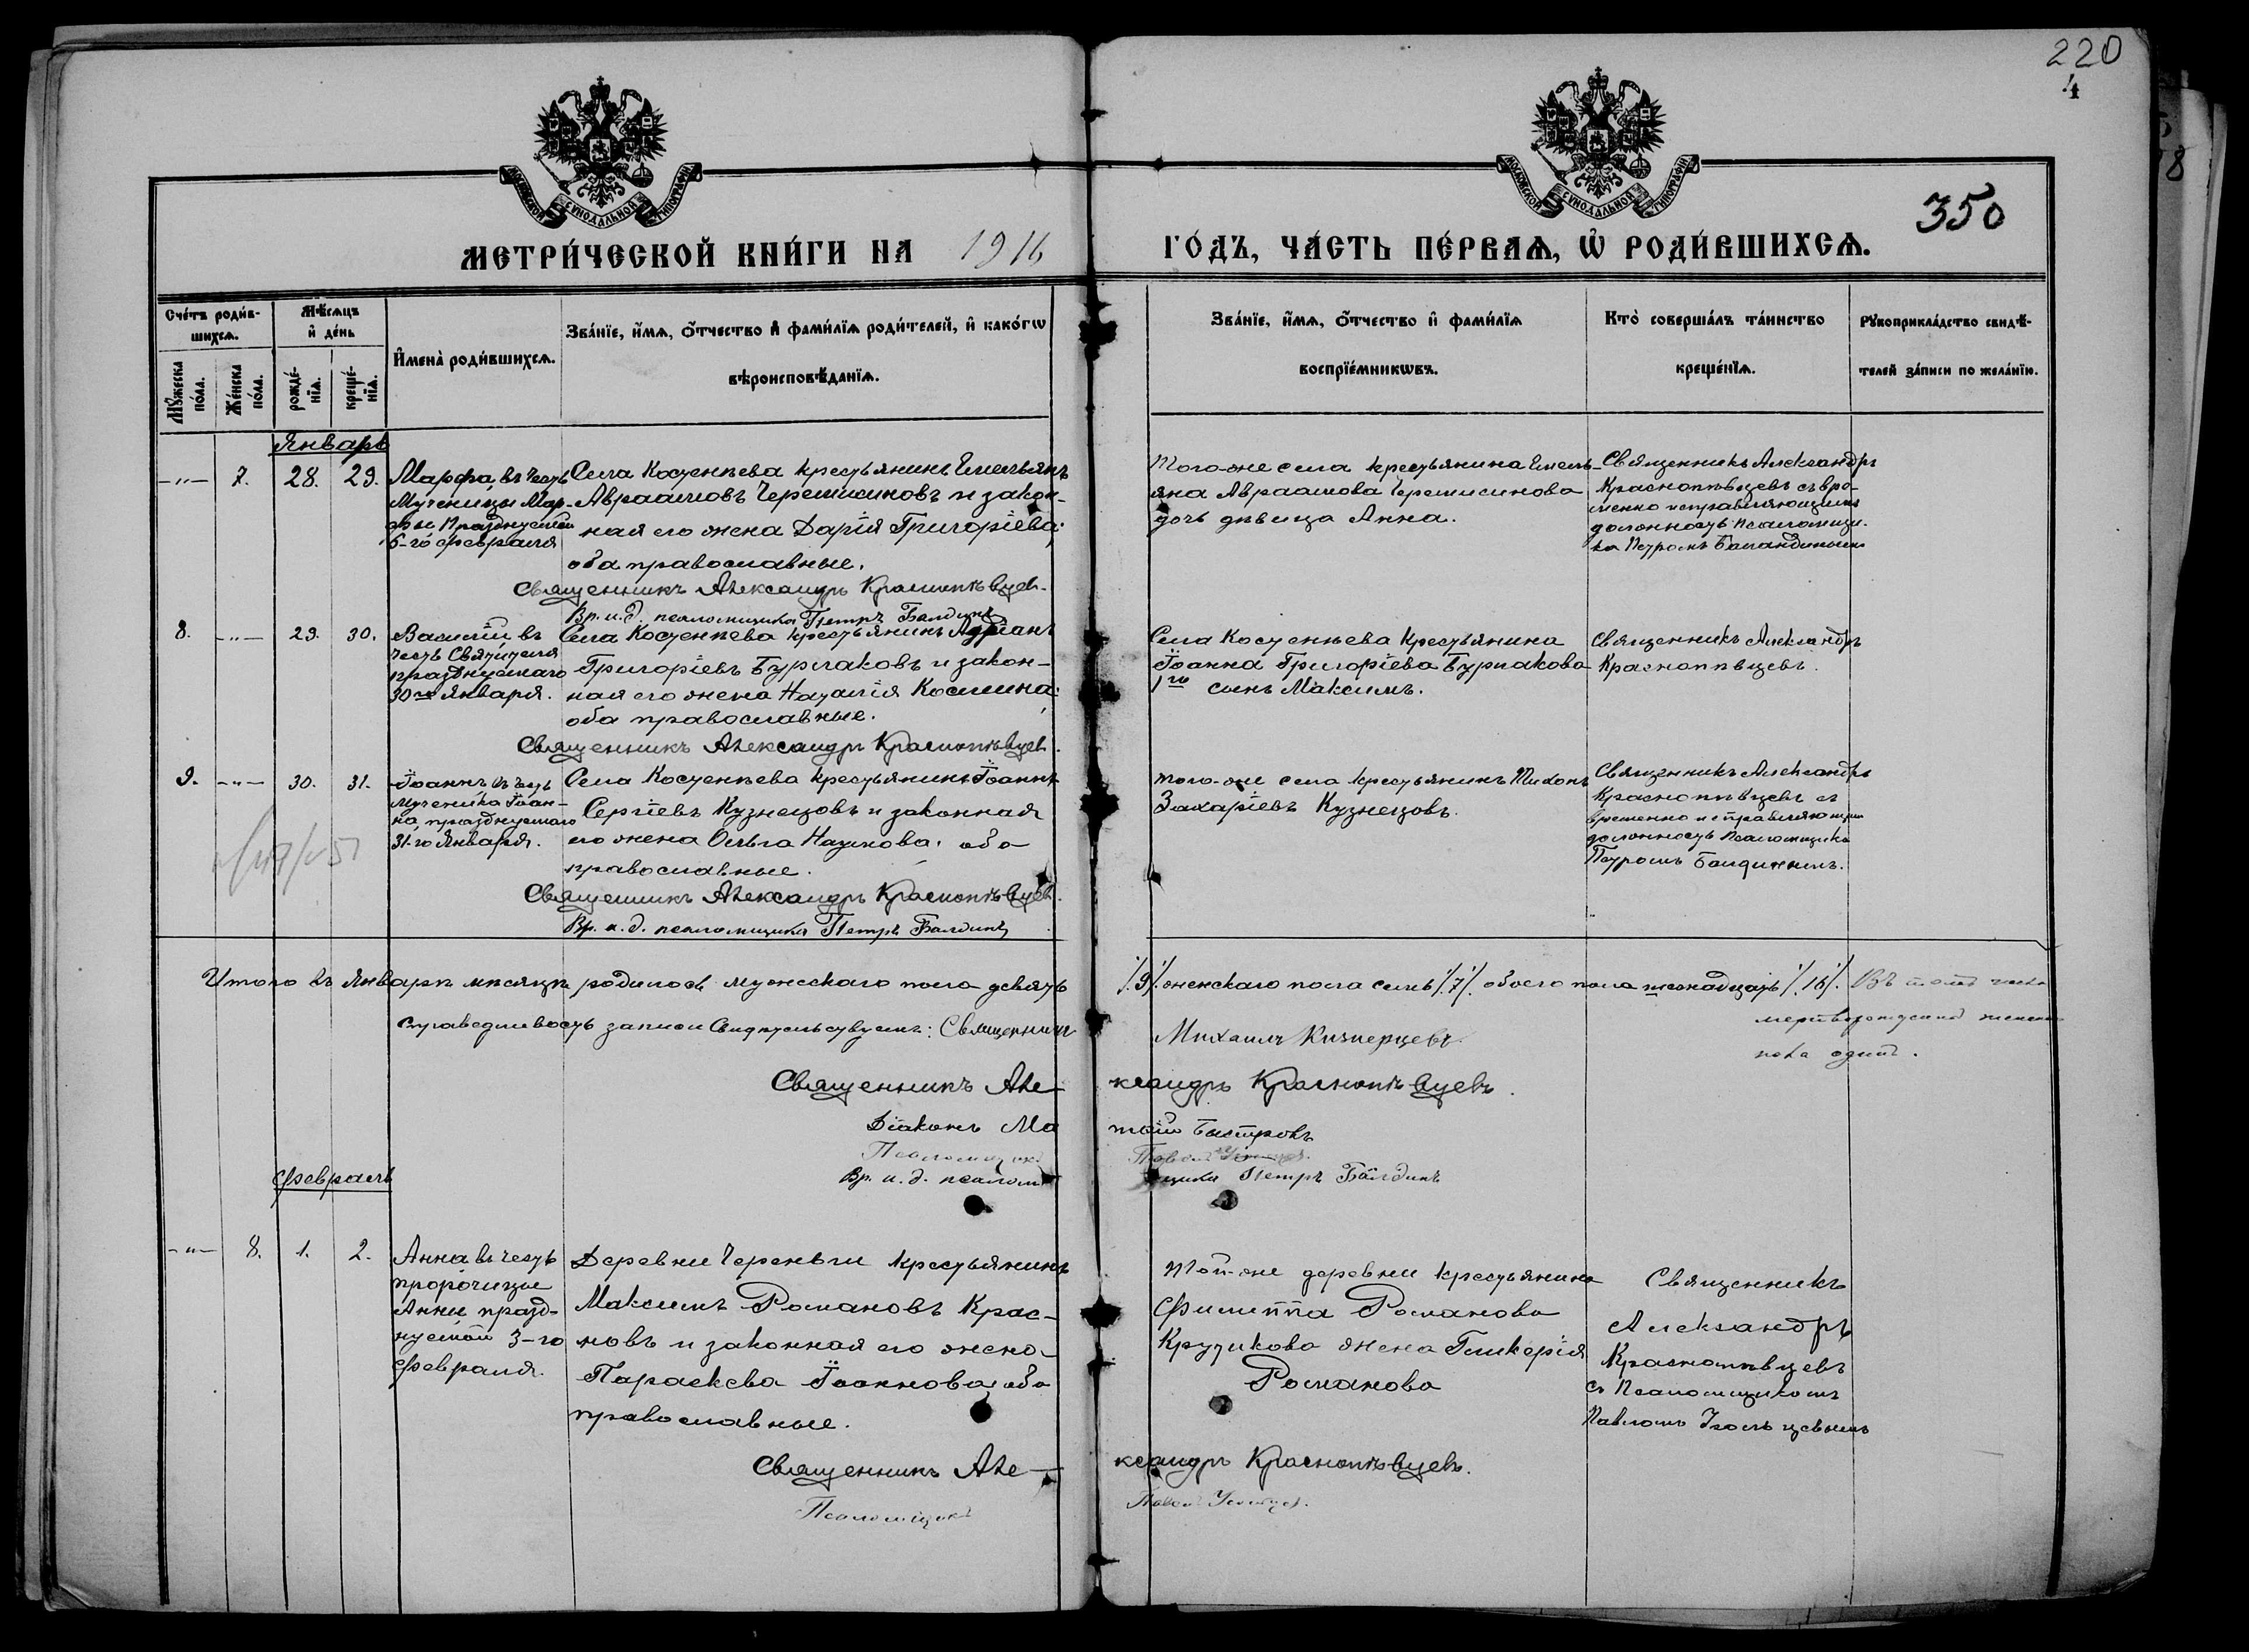 220
4
350
МОСКОВСКОЙ СѴНОДАЛЬНОЙ ТИПОГРАФІИ
МОСКОВСКОЙ СѴНОДАЛЬНОЙ ТИПОГРАФІИ
МЕТРИ́ЧЕСКОЙ КНИ́ГИ НА 1916 ГО́ДЪ, ЧА́СТЬ ПЕ́РВАѦ, Ѽ РОДИ́ВШИХСѦ.
Сче́тъ роди́в-
шихсѧ.
Мꙋ́жеска
по́ла.
Же́нска
по́ла.
Мѣ́сѧцъ
и҆ де́нь
рожде́-
нїѧ.
креще́-
нїѧ.
И҆мена̀ роди́вшихсѧ.
Зва́нїе, и҆́мѧ, ѻ҆́тчество и҆ фами́лїѧ роди́телей, и҆ како́гѡ
вѣроисповѣ́данїѧ.
Зва́нїе, и҆́мѧ, ѻ҆́тчество и҆ фами́лїѧ
воспрїе́мникѡвъ.
Кто̀ соверша́лъ та́инство
креще́нїѧ.
Рꙋкоприкла́дство свидѣ́-
телей за́писи по жела́нїю.
Январь
-"- 7. 28. 29.
Марфа, въ честь
Мученицы Мар-
фы празднуемой
6-го февраля
Села Костенѣева крестьянинъ Емельянъ
Авраамовъ Черемисиновъ и закон-
ная его жена Дарія Григоріева;
оба православные.
Священникъ Александръ Краснопѣвцевъ.
Вр. и. д. псаломщика Петръ Балдинъ
Того-же села крестьянина Емель-
яна Авраамова Черемисинова
дочь дѣвица Анна.
Священникъ Александръ
Краснопѣвцевъ съ вре-
менно исправляющимъ
должность псаломщи-
ка Петромъ
8. -"- 29. 30.
Василій въ
честь Святителя
празднуемаго
30го Января.
Села Костенѣева крестьянинъ Адріанъ
Григоріевъ Бурлаковъ и закон-
ная его жена Наталія Космина;
оба православные.
Священникъ Александръ Краснопѣвцевъ.
Села Костенѣева Крестьянина
Іоанна Григоріева Бурлакова
1го сынъ Максимъ.
Священникъ Александръ
Краснопѣвцевъ.
9. -"- 30. 31.
Іоаннъ въ честь
Мученика Іоан-
на, празднуемаго
31-го Января.
Села Костенѣева крестьянинъ Іоаннъ
Сергіевъ Кузнецовъ и законная
его жена Ольга Наумова, оба
православные.
Священникъ Александръ Краснопѣвцевъ.
Вр. и. д. псаломщика Петръ Балдинъ
того-же села крестьянинъ Тихонъ
Захаріевъ Кузнецовъ.
Священникъ Александръ
Краснопѣвцевъ съ
временно исправляющим
должность Псаломщика
Петромъ Балдинымъ.
Итого въ Январѣ мѣсяцѣ родилось мужескаго пола девять /.9/. женскаго пола семь /.7/. обоего пола шестнадцать /.16/. Въ томъ числѣ
мертворожденный женска
пола одинъ.
Справедливость записи Свидѣтельствуемъ: Священникъ Михаилъ Кизнерцевъ.
Священникъ Александръ Краснопѣвцевъ.
Діаконъ Быстровъ
Псаломщикъ Павелъ
Вр. и. д. псаломщика Петръ Балдинъ
Февраль
-"- 8. 1. 2.
Анна въ честь
пророчицы
Анны, празд-
нуемой 3-го
Февраля.
Деревни Череньги крестьянинъ
Максимъ Романовъ Крас-
новъ и законная его жена
Параскева Іоаннова, оба
православные.
Священникъ Александръ Краснопѣвцевъ.
Псаломщикъ Павелъ
той-же деревни крестьянина
Филиппа Романова
жена Гликерія
Романова
Священникъ
Александръ
Краснопѣвцевъ
съ Псаломщикомъ
Павломъ